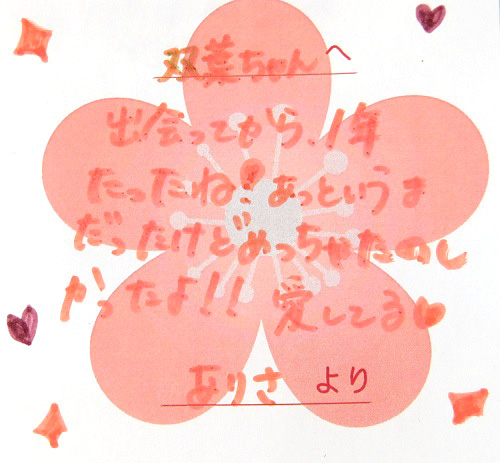 双葉ちゃんへ
出会ってから、1年
たったね!あっというま
だったけどめっちゃたのし
かったよ!!愛してる♥
ありさ より